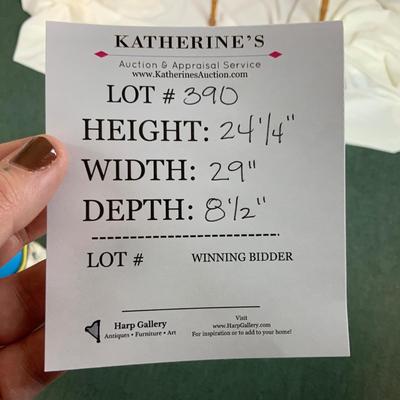 KATHERINE'S
Auction & Appraisal Service
www.KatherinesAuction.com
LOT # 390
HEIGHT: 24 1/4"
WIDTH: 29"
DEPTH: 8 1/2"
LOT # WINNING BIDDER
Harp Gallery
Antiques • Furniture • Art
Visit
www.HarpGallery.com
For inspiration or to add to your home!